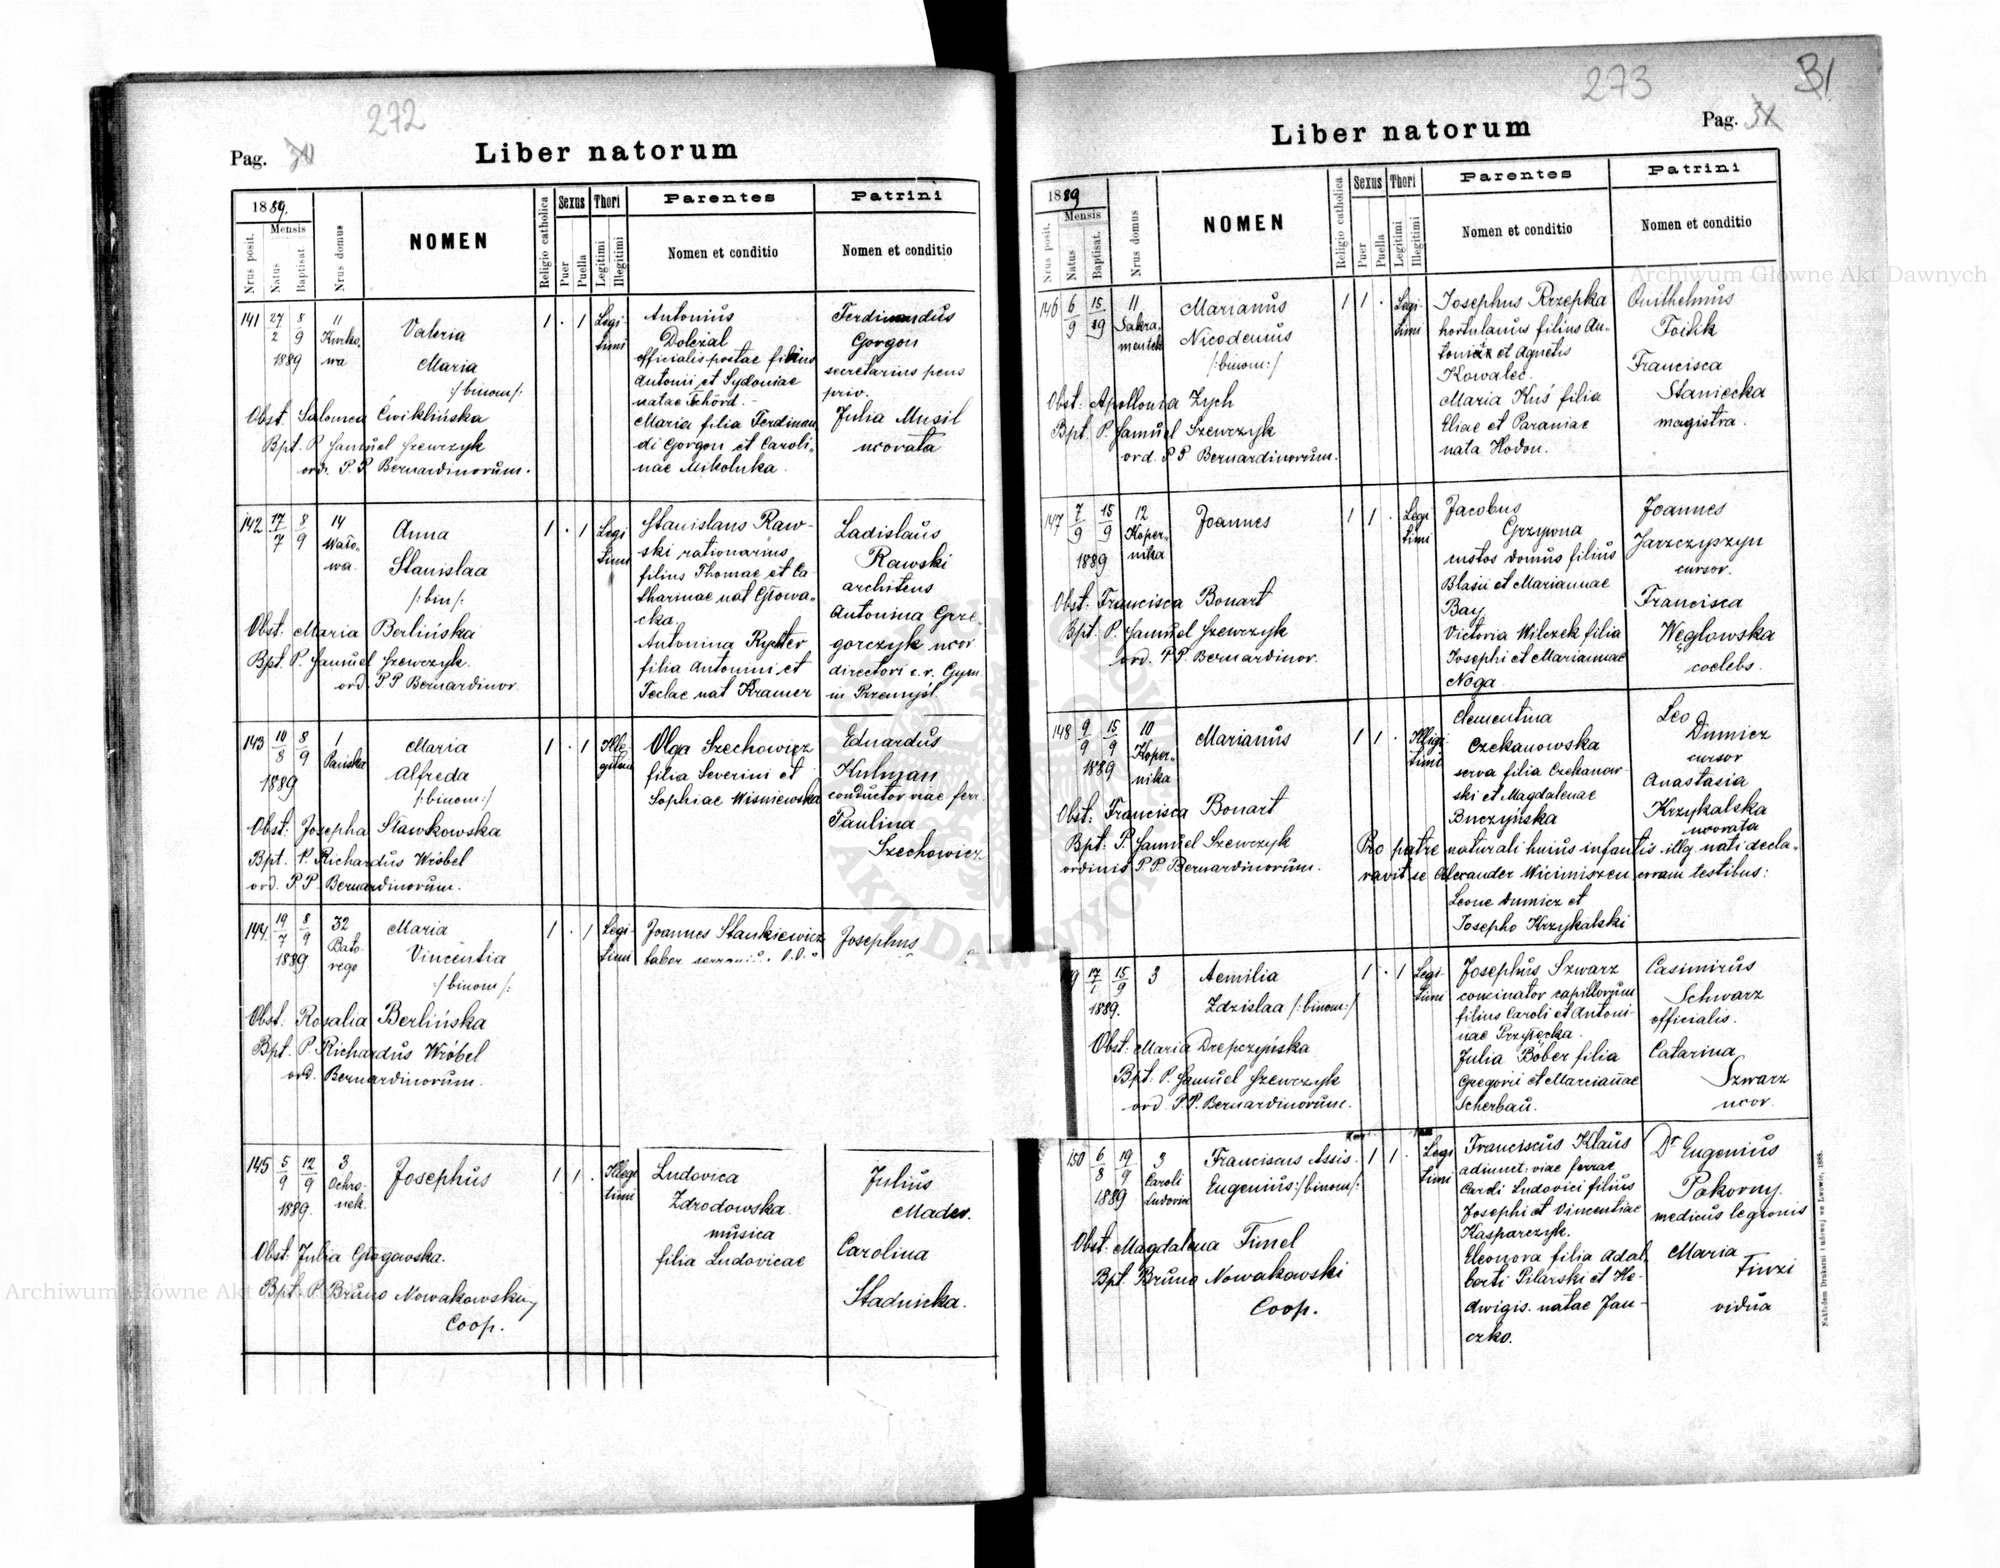 272
Pag.
Liber natorum
1889.
Mensis
Nrus posit.
Natus
Baptisat.
Nrus domus
NOMEN
Religio catholica
Sexus
Puer
Puella
Thori
Legitimi
Illegitimi
Parentes
Nomen et conditio
Patrini
Nomen et conditio
141 27/2 8/9 1889
11
Valeria
Maria
/:binom/:
1 . 1
Legi
timi
Antoniŭs
Doležal
officialis postae filius
Antonii et Sydoniae
natae
Maria filia Ferdinan
di Gorgon et Caroli„
nae Mikolnka.
Ferdinandŭs
Gorgon
secretarius pens
priv.
Julia Musil
uxorata
Obst. Salomea Ćwiklińska
Bpt. P. Samŭel Szewczyk
ord. P. P. Bernardinorŭm.
142 17/7 8/9
14
Anna
Stanislaa
/:bin/:
1 . 1
Legi
timi
Stanislaus Raw-
ski rationarius
filius Thomae et Ca
tharinae nat Głowa„
cka.
Antonina Rychter
filia Antonini et
Teclae nat Kramer
Ladislaŭs
Rawski
architens
Antonina Grze„
gorczyk uxor
directori c.r. Gym
in Przemyśl.
Obst: Maria Berlińska
Bpt. P. Samŭel Szewczyk.
ord. P P Bernardinor.
143 10/8 8/9 1889
1
Pańska
Maria
Alfreda
/:binom:/
1 . 1
Ille
gitimi
Olga Szechowicz
filia Severini et
Sophiae Wisniewska
Eduardŭs
Hulman
conductor viae ferr.
Paulina
Szechowicz
Obst: Josepha Sławkowska
Bpt. P. Richardŭs Wróbel
ord. P P. Bernardinorŭm.
144. 19/7 8/9 1889
32
Bato-
rego
Maria
Vincentia
:/binom/:
1 . 1
Legi-
timi
Joannes Stankiewicz
Josephus
Obst: Rosalia Berlińska
Bpt. P. Richardŭs Wróbel
ord. Bernardinorŭm.
145 5/9 12/9 1889.
3
Ochro-
nek.
Josephŭs
1 1 .
Illegi
timi
Ludovica
Zdrodowska
mŭsica
filia Ludovicae
Julius
Mader.
Carolina
Stadnicka.
Obst: Julia Głogowska.
Bpt. P. Brŭno Nowakowski
Coop.
273
31
Liber natorum
Pag.
1889
Mensis
Nrus posit.
Natus
Baptisat.
Nrus domus
NOMEN
Religio catholica
Sexus
Puer
Puella
Thori
Legitimi
Illegitimi
Parentes
Nomen et conditio
Patrini
Nomen et conditio
146 6/9 15/89
11
Sakra„
mentek
Marianŭs
Nicodemŭs
/:binom:/
1 1 .
Legi-
timi
Josephus Rzepka
hortulanŭs filius An-
et Agnetis
Kowalec.
Maria Kuś filia
Eliae et Paraniae
nata Hodon.
Guilhelmŭs
Francisca
Staniecka
magistra.
Obst: Apollonia Zych
Bpt. P. Samŭel Szewczyk
ord. P P. Bernardinorŭm.
147 7/9 15/9 1889
12
Koper„
nika
Joannes
1 1 .
Legi
timi
Jacobus
Grzywna
custos domŭs filius
Blasii et Mariannae
Bay
Victoria Wilczek filia
Josephi et Mariannae
Noga.
Joannes
Jarzczyszyn
cursor.
Francisca
Węglowska
coelebs.
Obst: Francisca Bonart
Bpt. P. Samŭel Szewczyk
ord. P P. Bernardinor.
148 9/9 15/9 1889
10
Koper„
nika
Marianŭs
1 1 .
Illegi-
timi
Clementina
Czekanowska
serva filia Czekanow-
ski et Magdalenae
Buczyńska
Leo
Dumicz
cursor
Anastasia
Krzykalska
uxorata
Obst: Francisca Bonart
Bpt. P. Samŭel Szewczyk
ordinis P P. Bernardinorŭm.
Pro patre naturali huius infantis illg. nati decla„
ravit se Alexander Wicimiszen corram testibus:
Leone Dumicz et
Josepho Krzykalski
9 17/1 15/9 1889.
3
Aemilia
Zdzislaa /:binom:/
1 . 1
Legi-
timi
Josephŭs Szwarz
concinator capillorŭm
filius Caroli et Antoni-
nae Przypecka.
Julia Böber filia
Gregorii et Marciannae
Scherbaŭ.
Casimirŭs
Schwarz
officialis.
Catarina
Szwarz
uxor.
Obst: Maria Drepczyńska
Bpt. P. Samŭel Szewczyk
ord. P P. Bernardinorŭm.
150 6/8 19/9 1889
3
Caroli
Ludovici
Franciscus Assis.
Eugeniŭs:/binom/:
1 1 .
Legi
timi
Franciscŭs Klaŭs
adiunct: viae ferrae
Caroli Ludovici filiŭs
Josephi et Vincentiae
Kasparczyk.
Eleonora filia Adal
berti Pilarski et He-
dwigis. natae Jan-
czko.
Dr Eugeniŭs
Pokorny.
medicŭs legionis
Maria
Tinzi
vidŭa
Obst: Magdalena Timel
Bpt. Brŭno Nowakowski
Coop.
Nakładem Drukarni Ludowej we Lwowie. 1888.
Archiwum Główne Akt Dawnych
Archiwum Główne Akt